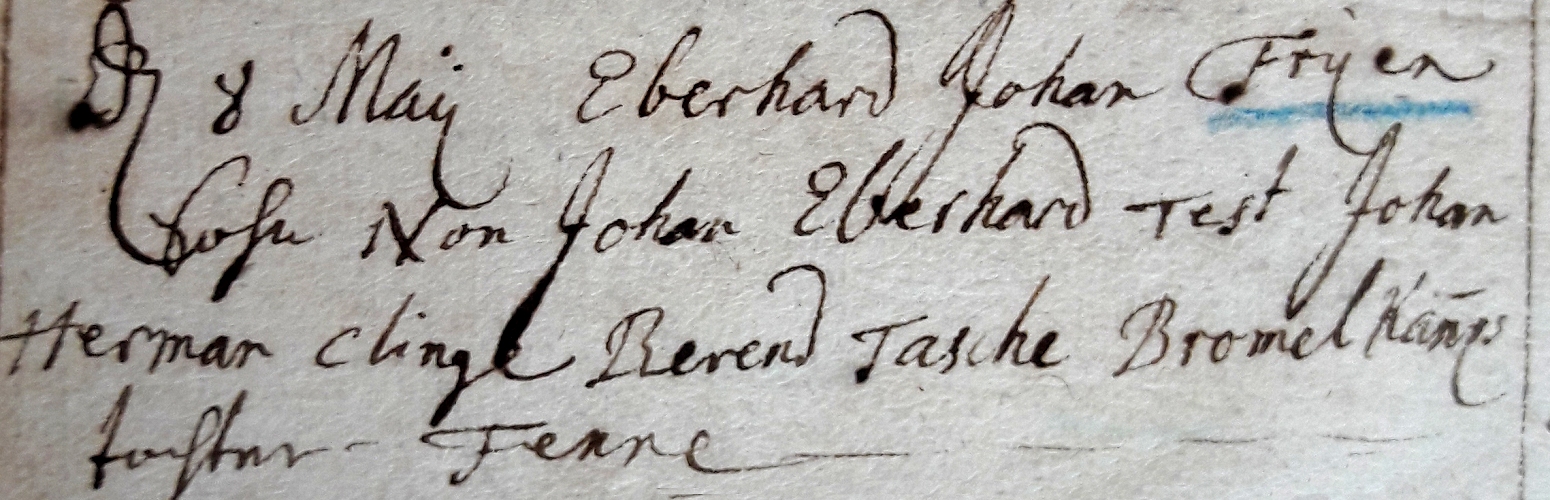 D 8 Maÿ Eberhard Johan Fryen
Sohn Von Johan Eberhard Test Johan
Herman Clinge Berend Tasche Bromel Kam̄ps
tochter Fenne